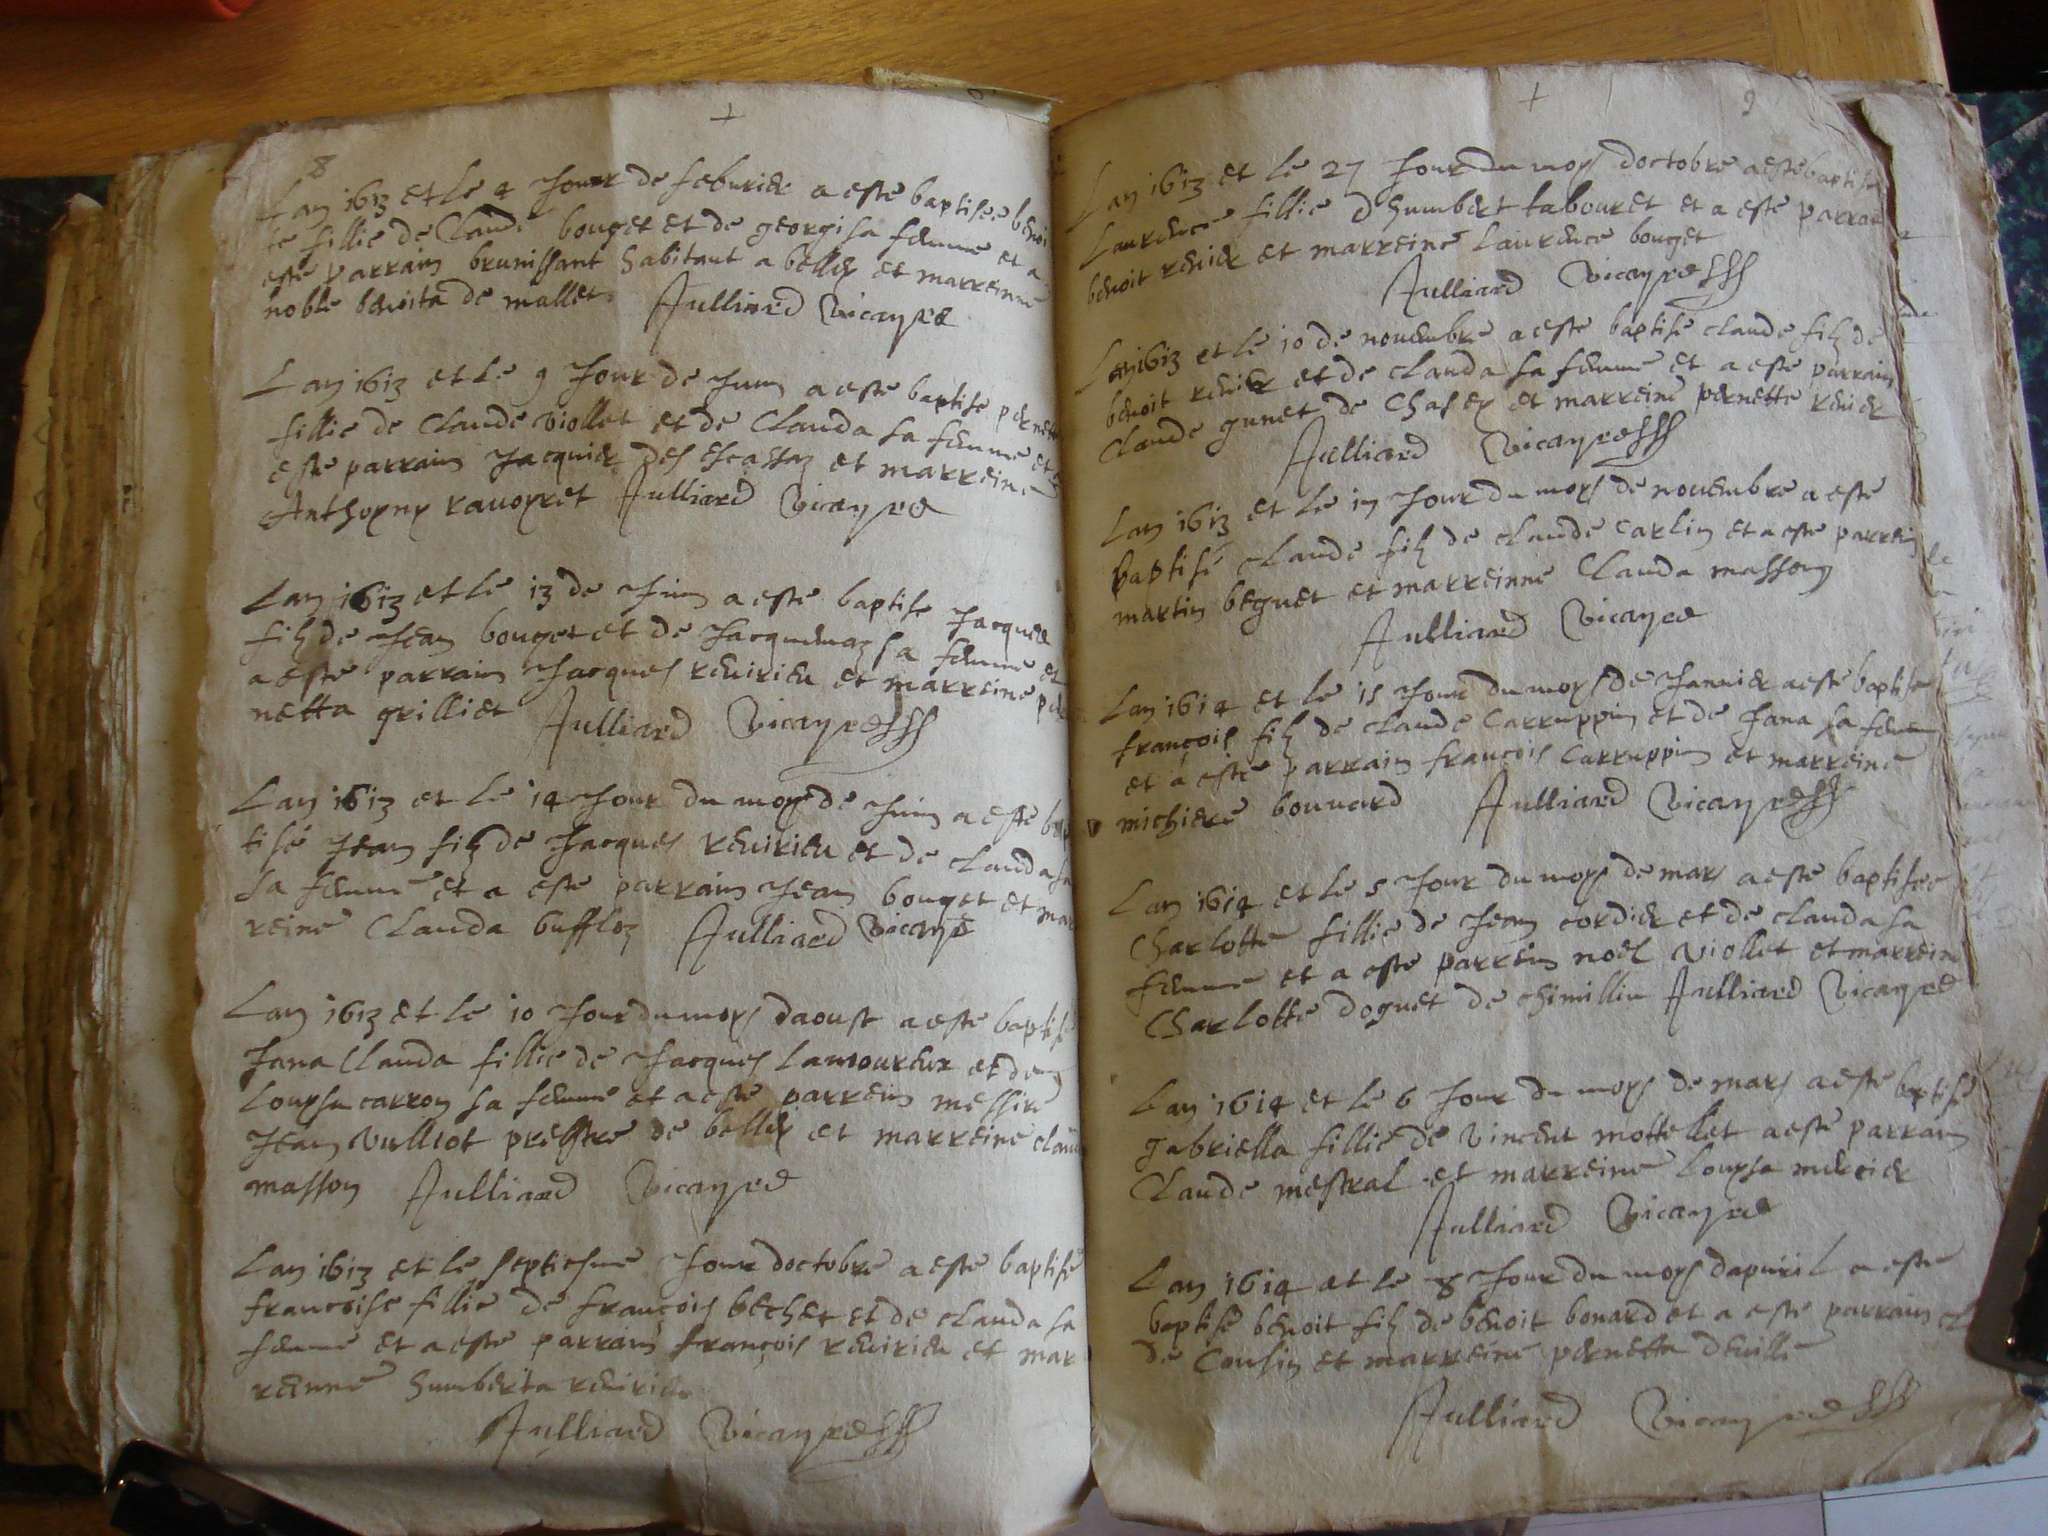 8
Lan 1613 et le 4 Jour de feburier a este baptisee benoi
te fillie de Claude bouget et de georgi sa femme et a
este parrain brunissant habitant a belley et marreinne
noble benoita de mallet Julliard Vicayre
Lan 1613 et le 9 Jour de Juin a este baptise pernette
fillie de Claude viollet et de Clauda sa femme et a
este parrain Jacquier des escassaz et marreine
Anthoyny ravoyret Julliard Vicayre
Lan 1613 et le 13 de Juin a este baptise Jacques
filz de Jean bouget et de Jacquemaz sa femme et
a este parrain Jacques revirieu et marreine per
netta grilliet Julliard Vicayre
Lan 1613 et le 14 Jour du moys de Juin a este bap
tisé Jean filz de Jacques revirieu et de Clauda sa
sa femme et a este parrain Jean bouget et mar
reine Clauda buffloz Julliard Vicayre
Lan 1613 et le 10 Jour du moys daoust a este baptise
Jana Clauda fillie de Jacques Lamoureux et de
Loupsa carron sa femme et a este parrein messire
Jean Vulliot prestre de belley et marreine claud
masson Julliard Vicayre
Lan 1613 et le septiesme Jour doctobre a este baptise
francoise fillie de françois bechet et de clauda sa
femme et a este parrain françois revirieu et mar
reinne humberta revirieu
Julliard Vicayre
9
Lan 1613 et le 27 Jour du moys doctobre a este baptise
Laurence fillie dhumbert tabouret et a este parrain
benoit revier et marreine Laurence bouget
Julliard Vicayre
Lan 1613 et le 10 de novembre a este baptise claude filz de
benoit revier et de clauda sa femme et a este parrain
Claude gunet de Chasey et marreine pernette revier
Julliard Vicayre
Lan 1613 et le 17 Jour du moys de novembre a este
baptisé claude filz de claude Carlin et a este parrein
martin beguet et marreinne Clauda masson
Julliard Vicayre
Lan 1614 et le 15 Jour du moys de Janvier a este baptise
françois filz de claude Carruppin et de Jana sa femme
et a este parrain françois Carruppin et marreine
michiere bouvard Julliard Vicayre
Lan 1614 et le 5 Jour du moys de mars a este baptisee
Charlotte fillie de Jean cordier et de clauda sa
femme et a este parrein noel Viollet et marreine
Charlotte doguet de chimillin Julliard Vicayre
Lan 1614 et le 6 Jour du moys de mars a este baptise
gabriella fillie de Vincent mottellet a este parrain
Claude mestral et marreine Loupsa mercier
Julliard Vicayre
Lan 1614 et le 8 Jour du moys dapuril a este
baptise benoit filz de benoit bonard et a este parrain cl
de Cousin et marreine pernetta deville
Julliard Vicayre